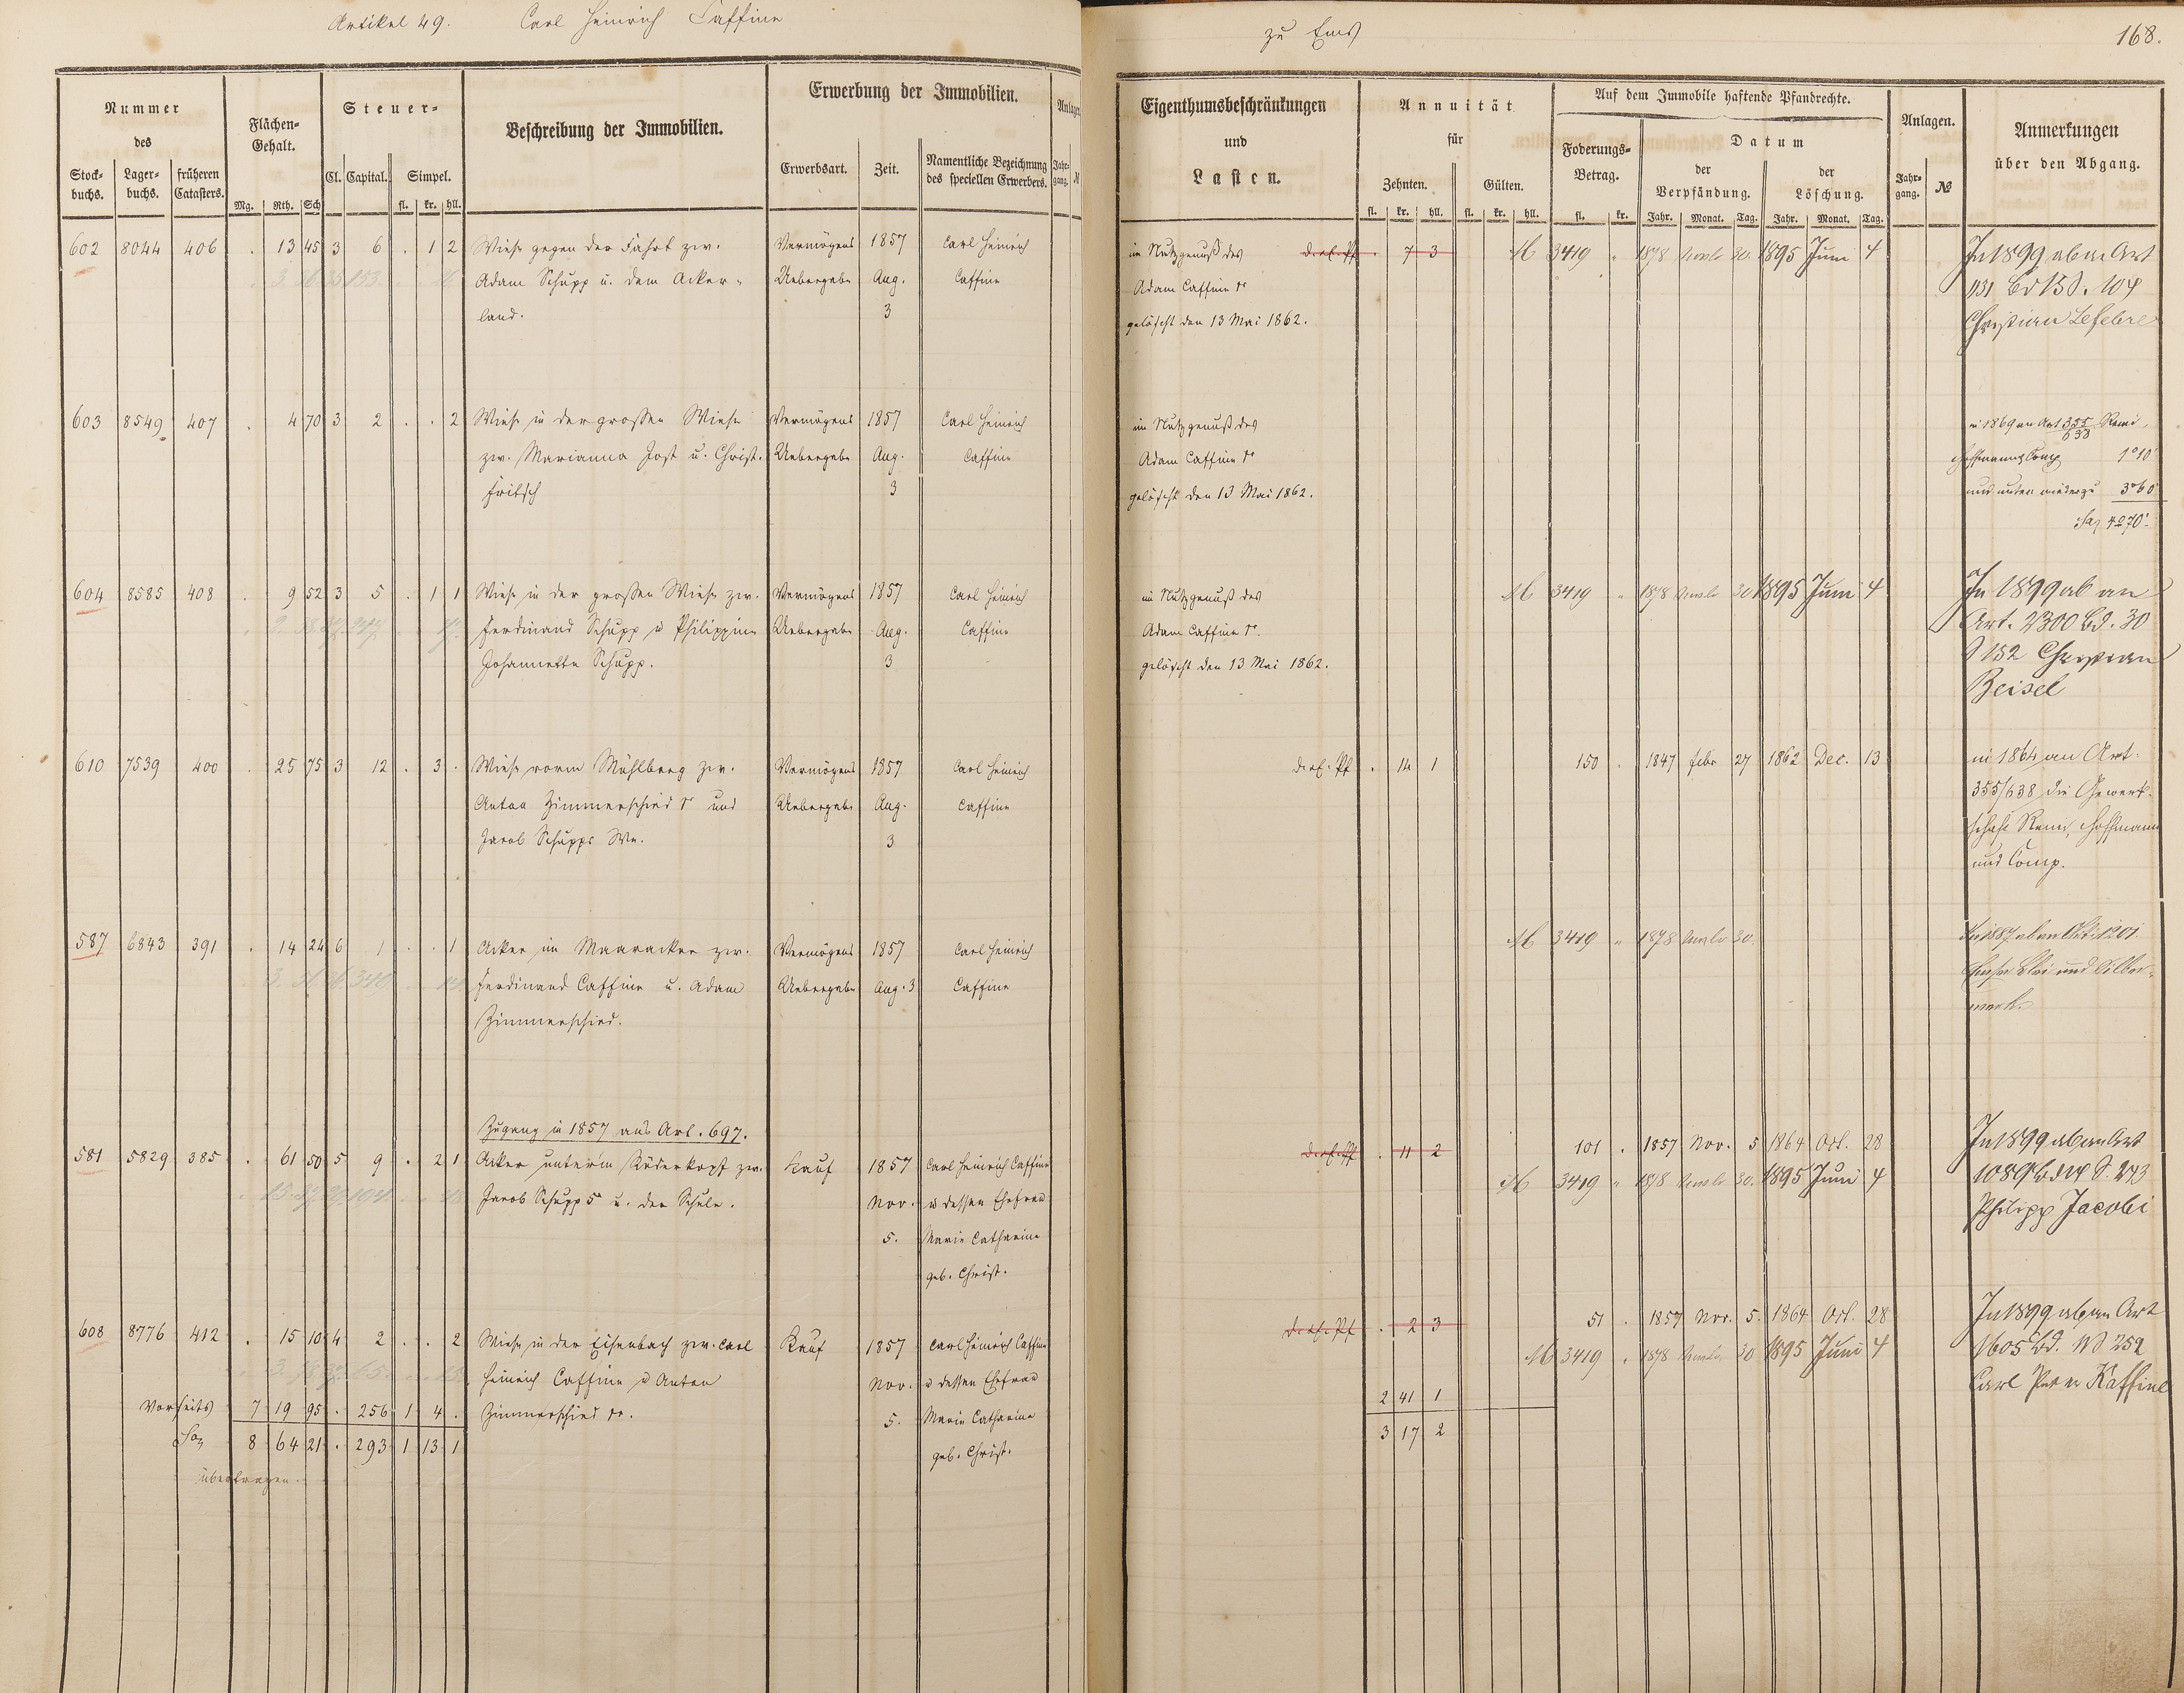 Artikel 49. Carl Heinrich Caffine
zu Ems
168.
Nummer
des
Stock-
buchs.
Lager-
buchs.
früheren
Catasters.
Flächen-
Gehalt.
Mg. Rth. Sch
Steuer-
Cl. Capital. Simpel.
fl. kr. hll.
Beschreibung der Immobilien.
Erwerbung der Immobilien.
Erwerbsart. Zeit. Namentliche Bezeichnung
des speciellen Erwerbers.
Anlagen
Jahr-
gang. N
Eigenthumsbeschränkungen
und
Lasten.
Annuität
für
Zehnten. Gülten.
fl. kr. hll. fl. kr. hll.
Auf dem Immobile haftende Pfandrechte.
Foderungs-
Betrag.
fl. kr.
Datum
der
Verpfändung.
Jahr. Monat. Tag.
der
Löschung.
Jahr. Monat. Tag.
Anlagen.
Jahr-
gang. №
Anmerkungen
über den Abgang.
602 8044 406 . 13 45 3 6 . 1 2 Wiese gegen der Fahrt zw. Vermögens 1857 Carl Heinrich
Adam Schupp u. dem Acker- Uebergabe Aug. Caffine
land. 3
im Nutzgenuß des . 7 3 M 3419 " 1878 30. 1895 Juni 4 In 1899 ab an Art
Adam Caffine 1r 1131 Bd 15 S. 104
gelöscht den 13 Mai 1862. Christian Lefebre
603 8549 407 . 4 70 3 2 . . 2 Wiese in der großen Wiese Vermögens 1857 Carl Heinrich
zw. Marianna Jost u. Christ. Uebergabe Aug. Caffine
Fritsch 3
im Nutzgenuß des in 1869 an Art 355/638 Remi,
Adam Caffine 1r Hoffmann & Comp 1° 10'
gelöscht den 13 Mai 1862. und unten 3° 60'
Sa 4° 70'
604 8585 408 . 9 52 3 5 . 1 1 Wiese in der großen Wiese zw. Vermögens 1857 Carl Heinrich
Ferdinand Schupp u Philippine Uebergabe Aug. Caffine
Johannette Schupp. 3
im Nutzgenuß des M 3419 " 1878 30 1895 Juni 4 In 1899 ab an
Adam Caffine 1r. Art. 2300 Bd. 30
gelöscht den 13 Mai 1862. S 152 Christian
Beisel
610 7539 400 . 25 75 3 12 . 3 . Wiese vorm Mühlberg zw. Vermögens 1857 Carl Heinrich
Anton Zimmerschied 1r und Uebergabe Aug. Caffine
Jacob Schupps We. 3
. 14 1 150 . 1847 Febr 27 1862 Dec. 13 in 1864 an Art.
355/638 die Gewerk-
schaft Remi, Hoffmann
und Comp.
587 6843 391 . 14 24 6 1 . . 1 Acker im Maaracker zw. Vermögens 1857 Carl Heinrich
Ferdinand Caffine u. Adam Uebergabe Aug. 3 Caffine
Zimmerschied.
M 3419 " 1878 30. In 1887 ab an Art. 1201
Emser Blei und Silber-
werk.
Zugang in 1857 aus Art. 697.
581 5829 385 . 61 50 5 9 . 2 1 Acker unter'm Röderkopf zw. Kauf 1857 Carl Heinrich Caffine
Jacob Schupp 5r u. der Schule. Nov. u dessen Ehefrau
5. Marie Catharine
geb. Christ.
. 11 2 101 . 1857 Nov. 5 1864 Oct. 28 In 1899 ab an Art
M 3419 " 1878 30. 1895 Juni 4 1089 Bd 14 S. 273
Philipp Jacobi
608 8776 412 . 15 10 4 2 . . 2 Wiese in der Eisenbach zw. Carl Kauf 1857 Carl Heinrich Caffine
Heinrich Caffine u Anton Nov. u dessen Ehefrau
Zimmerschied 1r. 5. Marie Catharine
geb. Christ.
. 2 3 51 . 1857 Nov. 5. 1864 Oct. 28 In 1899 ab an Art
M 3419 . 1878 30 1895 Juni 4 1605 Bd. S 252
Carl Peter Kaffine
Vorseits 7 19 95 . 256 1 4 . 2 41 1
Sa 8 64 21 . 293 1 13 1 3 17 2
übertragen.